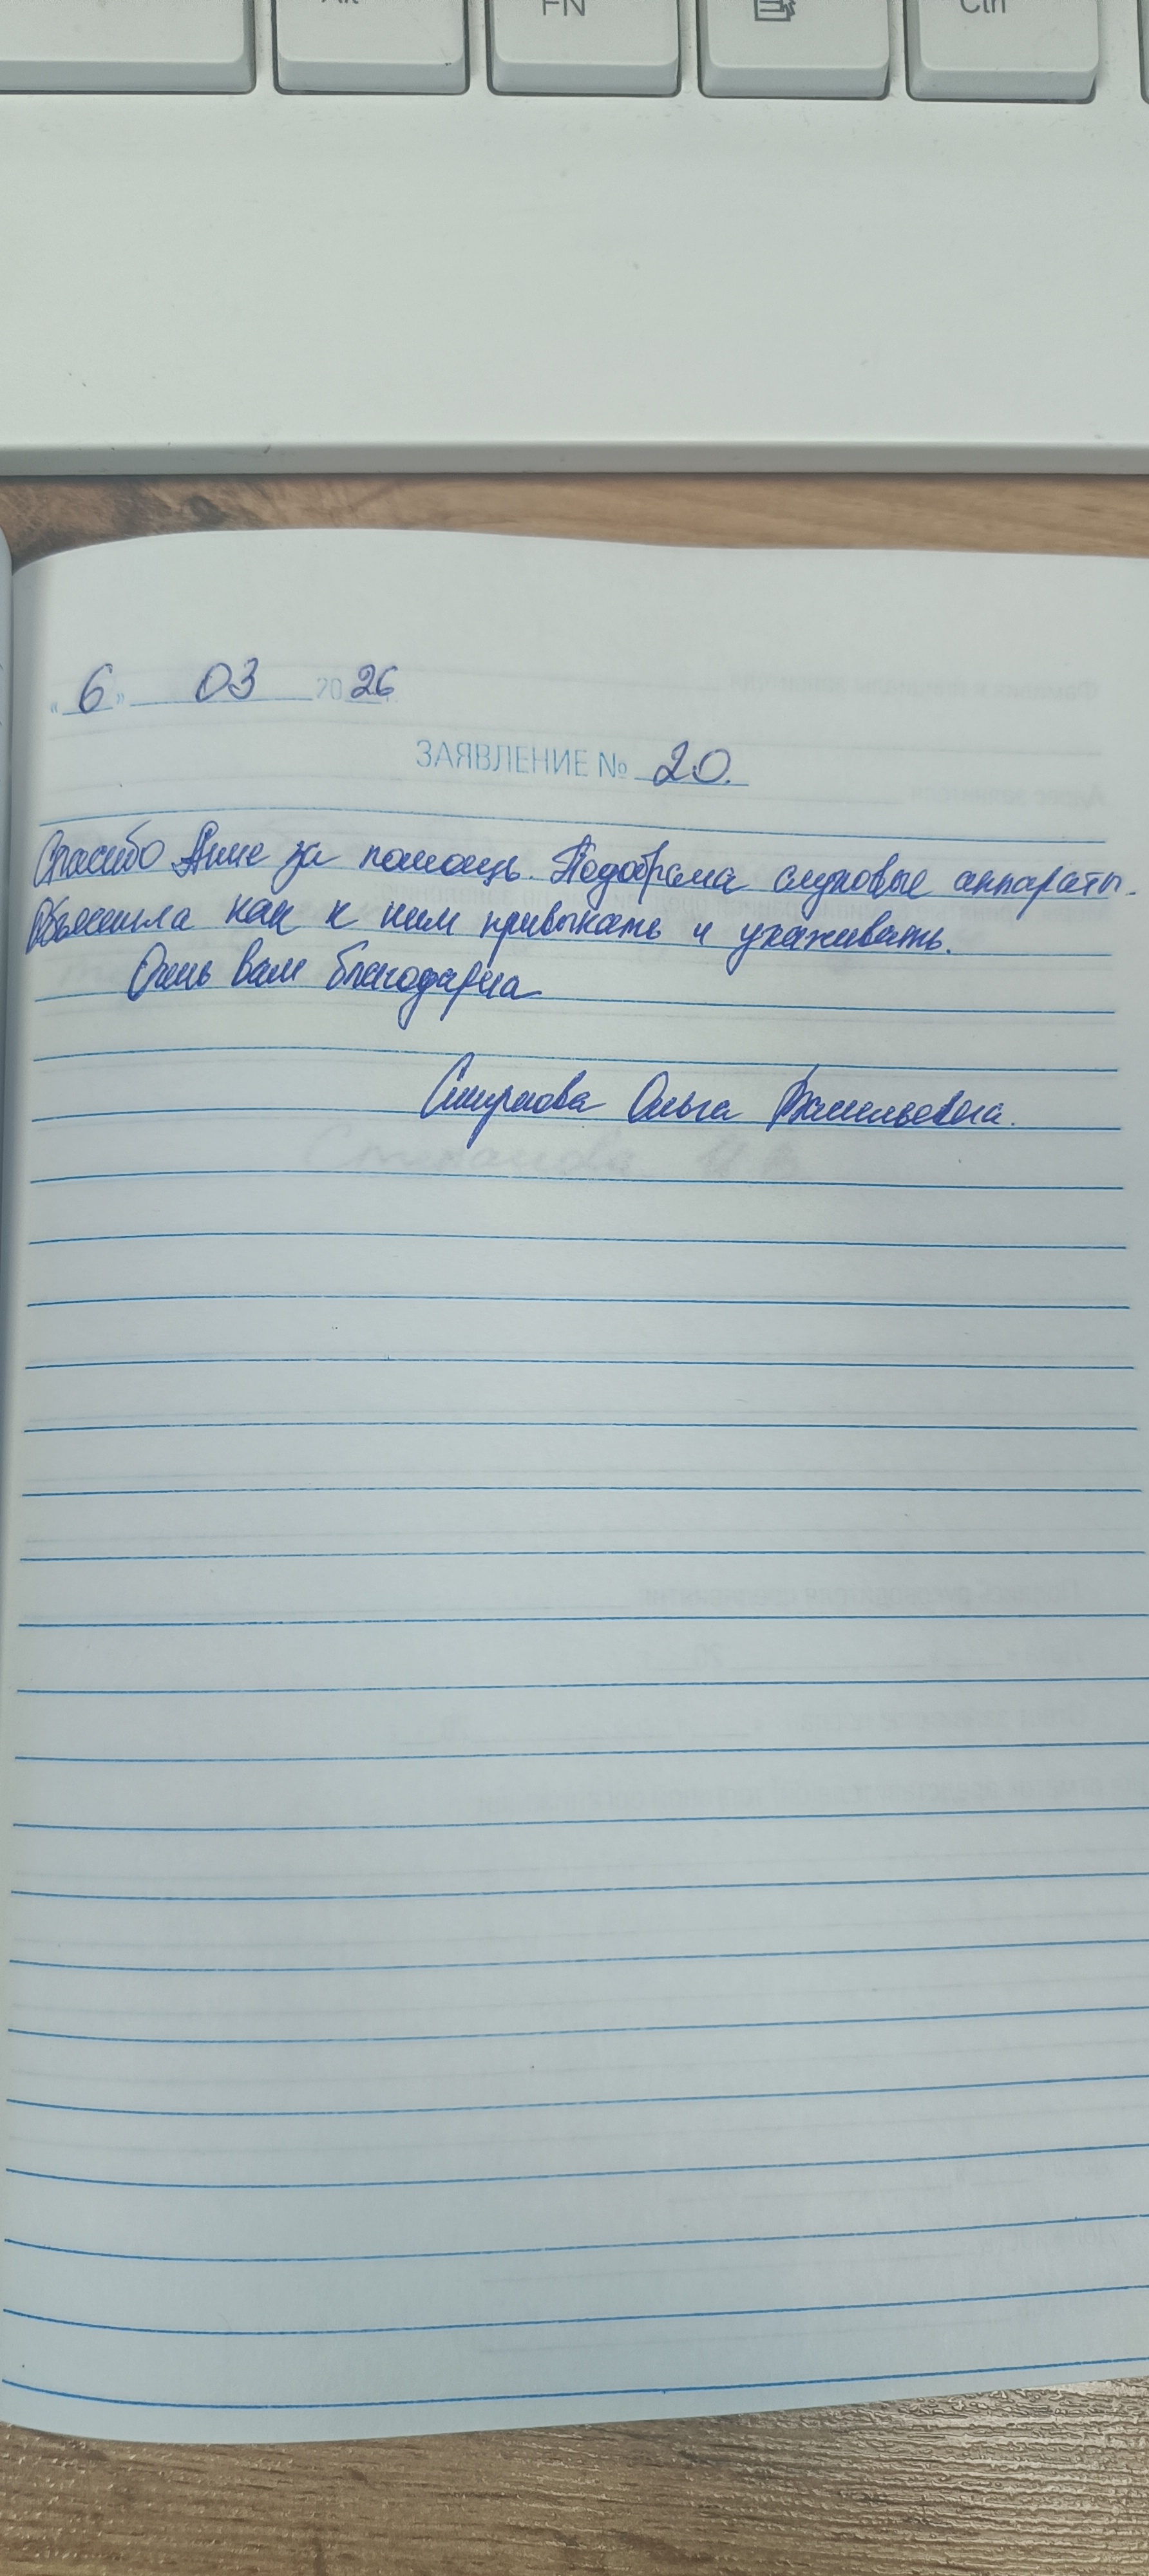 Alt FN Ctrl
«6» 03 2026
ЗАЯВЛЕНИЕ № 20.
Спасибо Анне за помощь. Подобрала слуховые аппараты.
Объяснила как к ним привыкать и ухаживать.
Очень вам благодарна
Смирнова Ольга Васильевна.